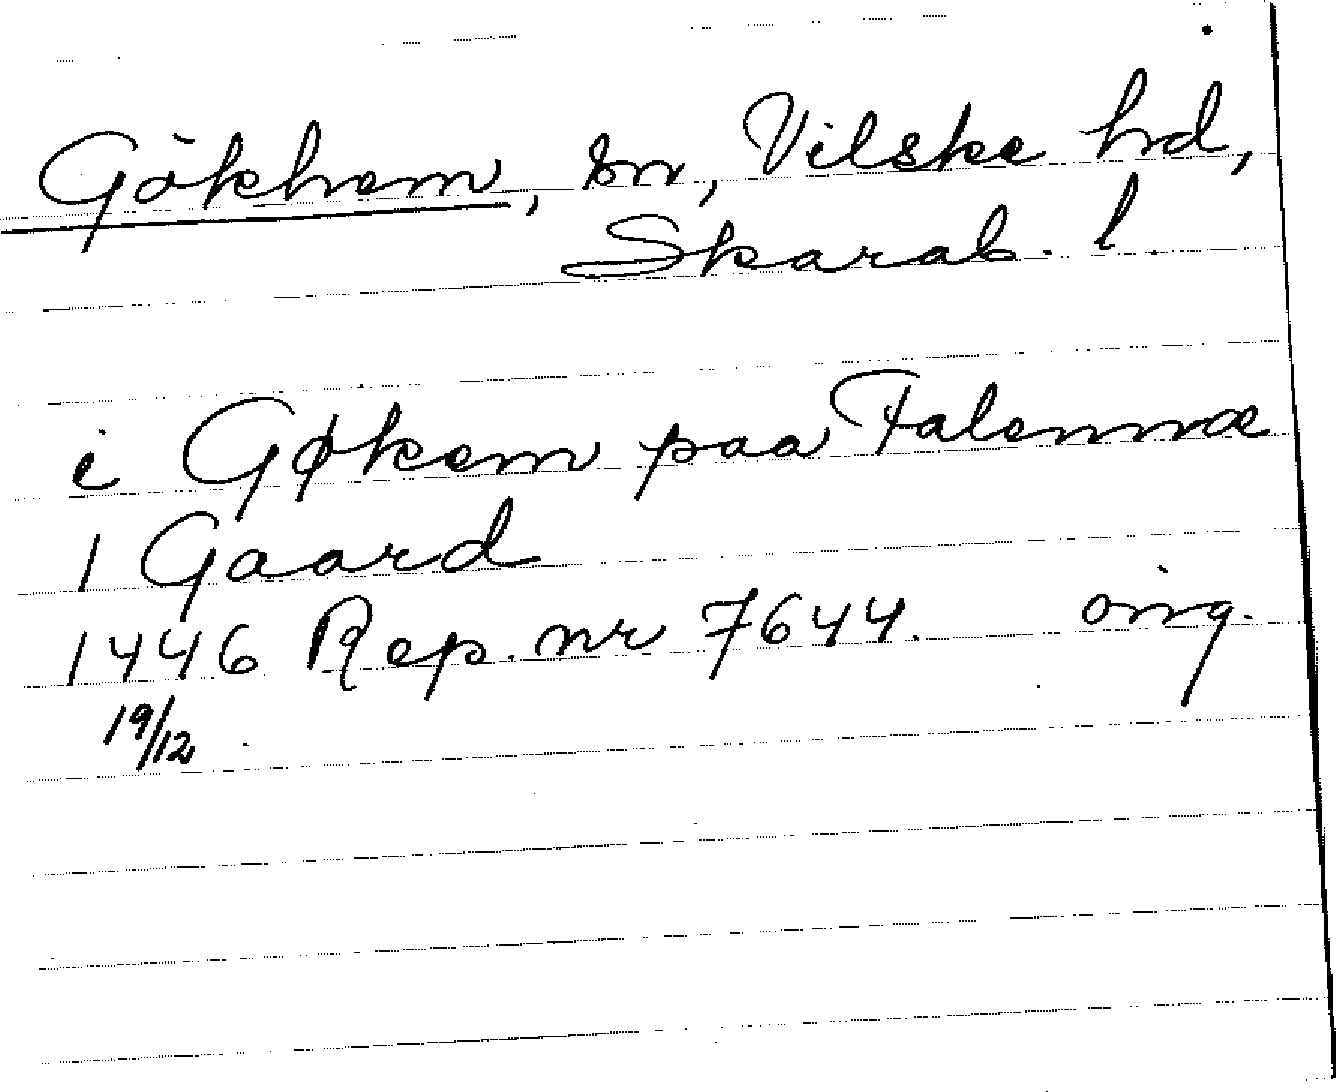 Gökhem, sn, Vilske hd,
Skarab. l.
i Gøkem paa Falennæ
1 Gaard
1446 Rep. nr 7644. orig.
19/12